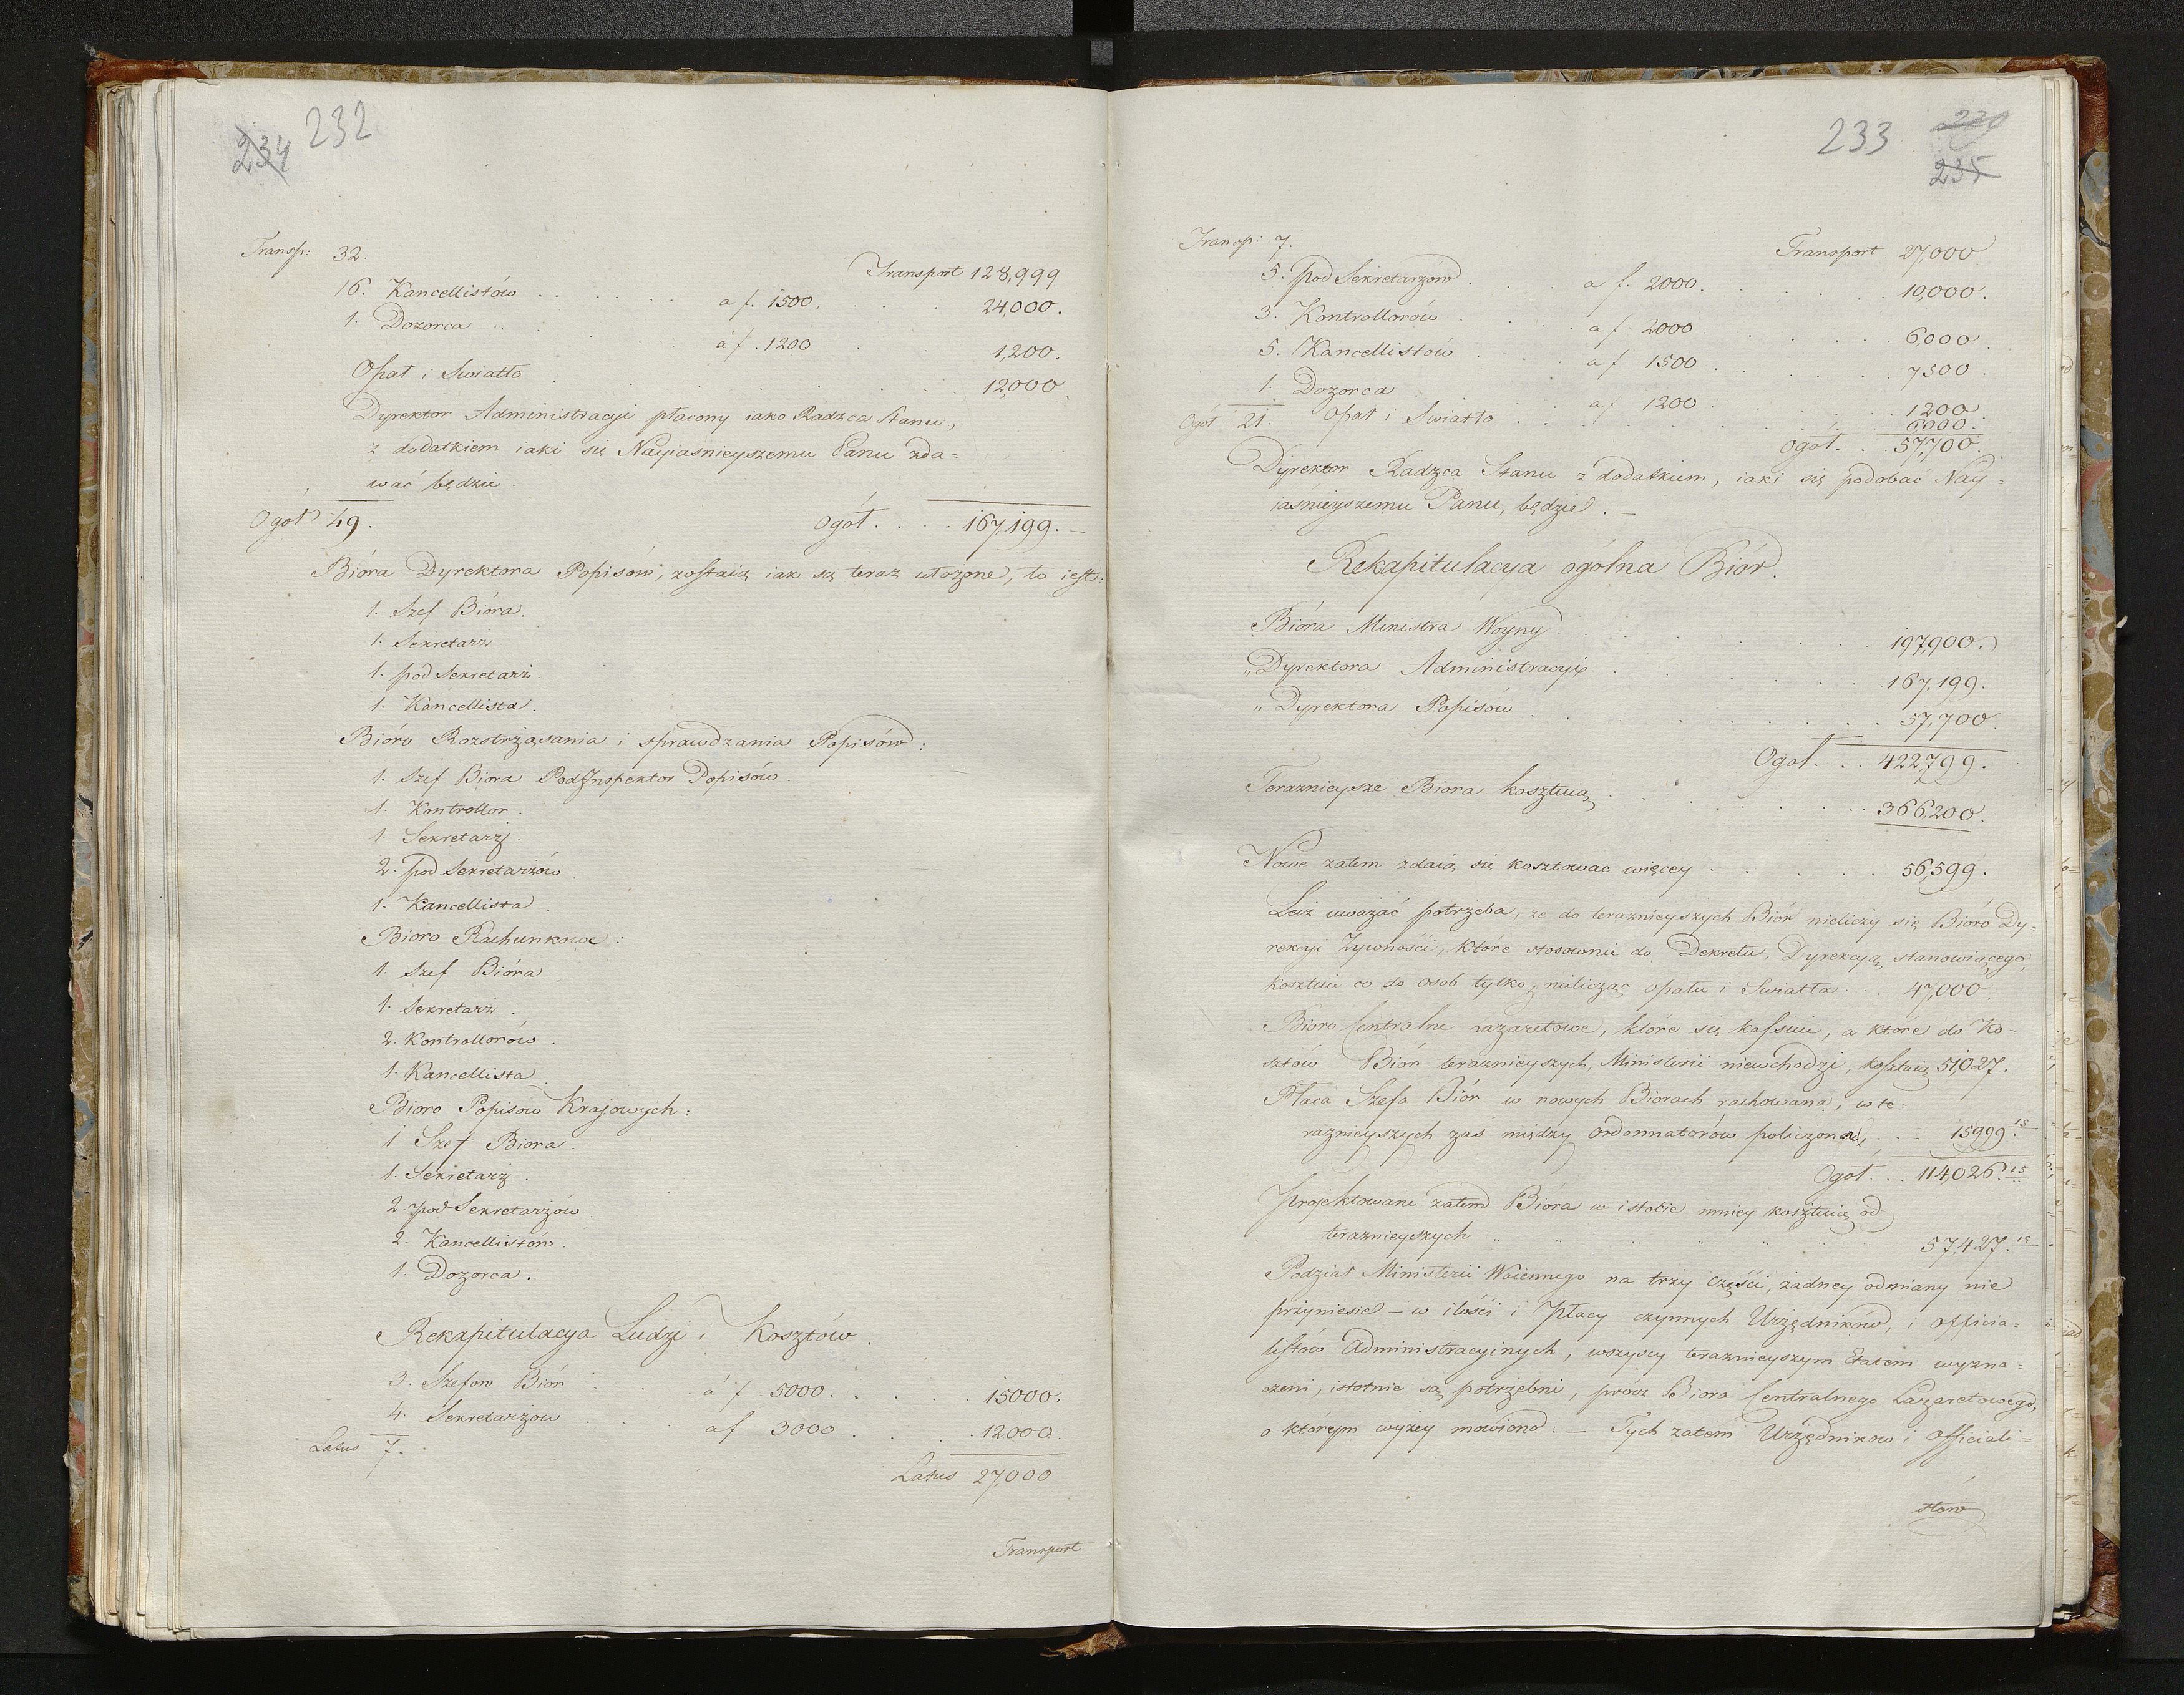 234 232
Transp: 32.
Transport 128,999
16. Kancellistów . . . . . . a f. 1500. . . . 24,000.
1. Dozorca . . . . . . á f. 1200 . . . 1,200.
Opał i Swiatło . . . . . . . . 12,000.
Dyrektor Administracyi płacony iako Radzca Stanu,
z dodatkiem iaki się Nayiasnieyszemu Panu zda=
wać będzie.
Ogół 49. Ogół. . . . 167,199.—
Bióra Dyrektora Popisów, zostaią iak są teraz ułożone, to iest:
1. Szef Bióra.
1. Sekretarz.
1. pod Sekretarz.
1. Kancellista.
Bióro Rozstrząsania i sprawdzania Popisów:
1. Szef Biora PodInspektor Popisów.
1. Kontrollor.
1. Sekretarz.
2. pod Sekretarzów.
1. Kancellista.
Bioro Rachunkowe:
1. Szef Bióra.
1. Sekretarz.
2. Kontrollorów.
1. Kancellista.
Bioro Popisow Krajowych:
1 Szef Biora.
1. Sekretarz.
2. pod Sekretarzów.
2. Kancellistów.
1. Dozorca.
Rekapitulacya Ludzi i Kosztów.
3. Szefow Biór . . . á f. 5000. . . . . 15000.
4. Sekretarzow . . . a f 3000 . . . . 12000.
Latus 7.
Latus 27,000
Transport
233 239
235
Transp: 7. Transport 27,000
5. pod Sekretarzów . . . a f. 2000. . . . . 10,000.
3. Kontrollorów . . . a f. 2000 . . . . 6,000.
5. Kancellistów . . . a f 1500 . . . . 7500.
1. Dozorca . . . a f 1200 . . . . 1200
Ogół 21. Opał i Swiatło . . . . . . . 6000.
Ogoł. . . 57,700.
Dyrektor Radzca Stanu z dodatkiem, iaki się podobać Nay=
iaśnieyszemu Panu, będzie. —
Rekapitulacya ogólna Biór.
Bióra Ministra Woyny . . . . . . 197,900.
" Dyrektora Administracyi . . . . . 167,199.
" Dyrektora Popisów . . . . . . 57,700.
Ogoł. . . 422,799.
Teraznieysze Biora kosztuią . . . . . 366,200.
Nowe zatem zdaią się kosztować więcey . . . . . 56,599.
Lecz uważać potrzeba, że do teraznieyszych Biór nieliczy się Bióro Dy=
rekcyi Żywności, które stosownie do Dekretu, Dyrekcyą stanowiącego,
kosztuie co do osob tylko, nielicząc opału i Swiatła . . . 47,000.
Bioro Centralne Lazaretowe, które się kassuie, a które do Ko=
sztów Biór teraznieyszych, Ministerii niewchodzi, kosztuią 51,027.
Płaca Szefa Biór w nowych Biorach rachowana, w te=
raznieyszych zaś między Ordonnatorów policzona, . . . 15999.15
Ogoł. . . 114,026.15
Projektowane zatem Bióra w istocie mniey kosztuią od
teraznieyszych " " " " " 57,427.15
Podział Ministerii Woiennego na trzy części, żadney odmiany nie
przyniesie – w ilości i płacy czynnych Urzędników, i officia=
listów Administracyinych, wszyscy teraznieyszym Etatem wyzna=
czeni, istotnie są potrzebni, prócz Biora Centralnego Lazaretowego,
o ktorym wyżey mowiono. — Tych zatem Urzędnikow i officiali=
stow